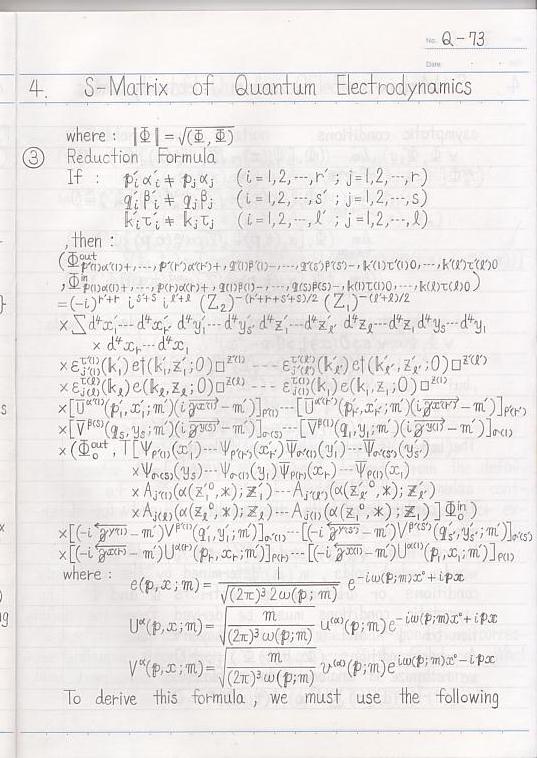 No. Q-73
Date
4. S-Matrix of Quantum Electrodynamics
where : ‖Φ‖ = √(Φ, Φ)
③ Reduction Formula
If : p'ᵢα'ᵢ ≠ pⱼαⱼ (i=1,2,⋯,r' ; j=1,2,⋯,r)
q'ᵢβ'ᵢ ≠ qⱼβⱼ (i=1,2,⋯,s' ; j=1,2,⋯,s)
k'ᵢτ'ᵢ ≠ kⱼτⱼ (i=1,2,⋯,l' ; j=1,2,⋯,l)
, then :
(Φ^out_p'(1)α'(1)+,⋯,p'(r')α'(r')+,q'(1)β'(1)-,⋯,q'(s')β'(s')-,k'(1)τ'(1)0,⋯,k'(l')τ'(l')0
,Φ^in_p(1)α(1)+,⋯,p(r)α(r)+,q(1)β(1)-,⋯,q(s)β(s)-,k(1)τ(1)0,⋯,k(l)τ(l)0)
=(-i)^r'+r i^s'+s i^l'+l (Z₂)^-(r'+r+s'+s)/2 (Z₁)^-(l'+l)/2
×∑∫d⁴x'₁⋯d⁴x'r' d⁴y'₁⋯d⁴y's' d⁴z'₁⋯d⁴z'l' d⁴zl⋯d⁴z₁ d⁴ys⋯d⁴y₁
× d⁴xr⋯d⁴x₁
×ε^τ'(1)_j'(1)(k'₁)e†(k'₁,z'₁;0)□^z'(1) ---- ε^τ'(l')_j'(l')(k'l')e†(k'l',z'l';0)□^z'(l')
×ε^τ(l)_j(l)(kl)e(kl,zl;0)□^z(l) ---- ε^τ(1)_j(1)(k₁)e(k₁,z₁;0)□^z(1)
×[U̅^α'(1)(p'₁,x'₁;m)(i∂̸^x'(1)-m')]ρ'(1)⋯[U̅^α'(r')(p'r',x'r';m)(i∂̸^x'(r')-m')]ρ'(r')
×[V̅^β(s)(qs,ys;m)(i∂̸^y(s)-m')]σ(s)⋯[V̅^β(1)(q₁,y₁;m)(i∂̸^y(1)-m')]σ(1)
×(Φ₀^out, T[Ψρ'(1)(x'₁)⋯Ψρ'(r')(x'r')Ψ̅σ'(1)(y'₁)⋯Ψ̅σ'(s')(y's')
×Ψσ(s)(ys)⋯Ψσ(1)(y₁)Ψ̅ρ(r)(xr)⋯Ψ̅ρ(1)(x₁)
×Aj'(1)(α(z'₁⁰,*);z'₁)⋯Aj'(l')(α(z'l'⁰,*);z'l')
×Aj(l)(α(zl⁰,*);zl)⋯Aj(1)(α(z₁⁰,*);z₁)]Φ₀^in)
×[(-i∂̸^y'(1)-m')V^β'(1)(q'₁,y'₁;m)]σ'(1)⋯[(-i∂̸^y'(s')-m')V^β'(s')(q's',y's';m)]σ'(s')
×[(-i∂̸^x(r)-m')U^α(r)(pr,xr;m)]ρ(r)⋯[(-i∂̸^x(1)-m')U^α(1)(p₁,x₁;m)]ρ(1)
where :
e(p,x;m) = 1/√((2π)³2ω(p;m)) e^-iω(p;m)x⁰+ipx
U^α(p,x;m) = √(m/((2π)³ω(p;m))) u^(α)(p;m)e^-iω(p;m)x⁰+ipx
V^α(p,x;m) = √(m/((2π)³ω(p;m))) v^(α)(p;m)e^iω(p;m)x⁰-ipx
To derive this formula, we must use the following